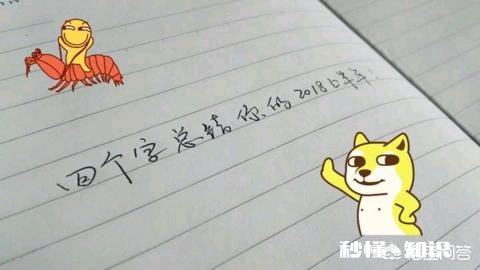 四个字总结你的2018上半年
秒懂 知识